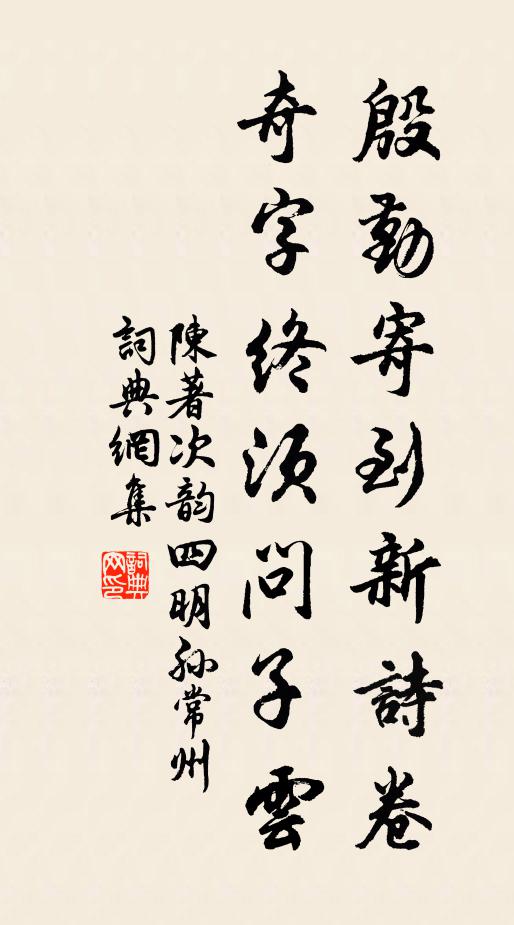 殷勤寄到新詩卷
奇字終須問子雲
陳著次韵四明孙常州
詞典網集
詞典網印